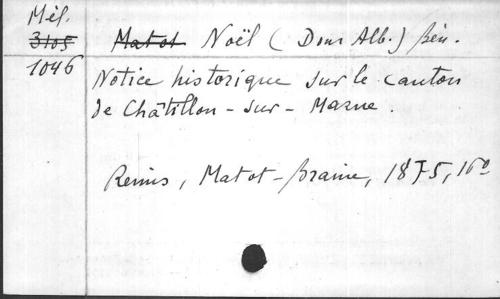 Mél.
3105 Matot Noël (Dom Alb.) bén.
1046 Notice historique sur le canton
de Châtillon-sur-Marne.
Reims, Matot-Braine, 1875, 16o